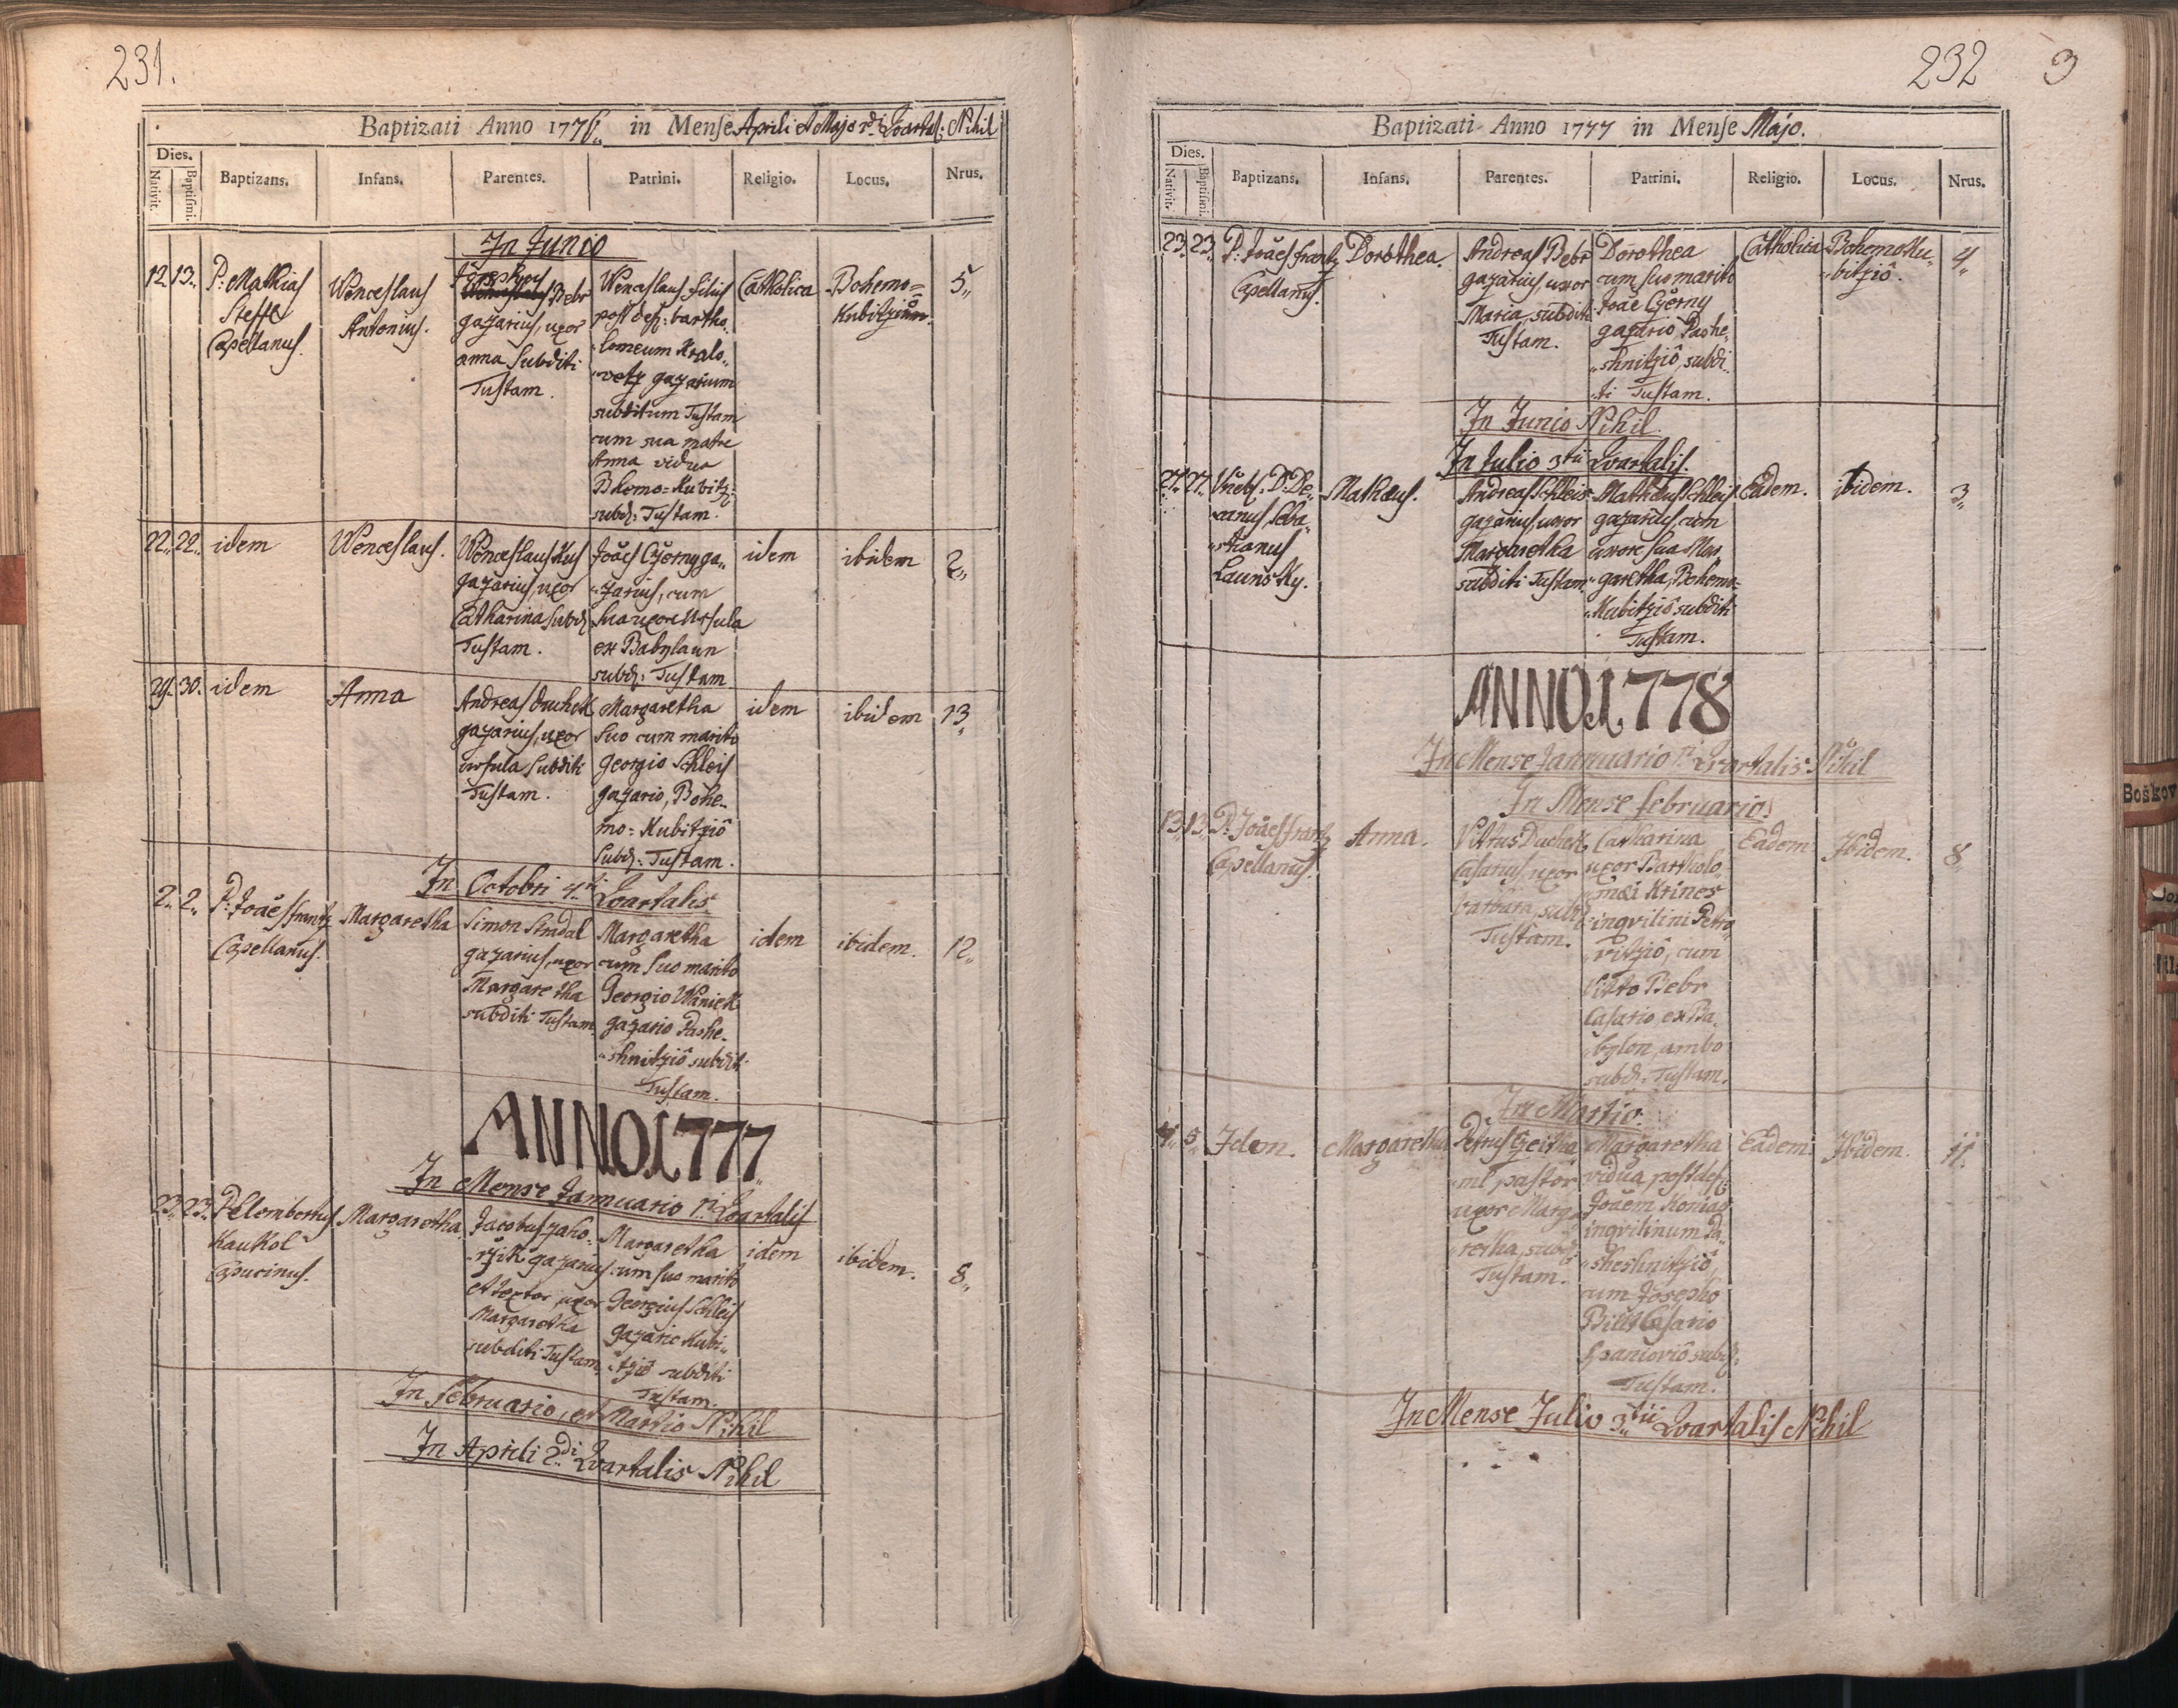 231.
Baptizati Anno 1776 in Menſe Aprili et Majo 2di Quartal: Nihil
Dies. Nativit. Baptiſmi. Baptizans. Infans. Parentes. Patrini. Religio. Locus. Nrus.
In Junio
12. 13.
P: Mathias
Steffl
Capellanus.
Wenceslaus
Antonius.
Bebr
gazarius, uxor
anna Subditi
Tustam.
Wenceslaus filius
post def: bartho
lomeum Kralo
vetz gazarium
subditum Tustam
cum sua matre
Anna vidua
Bhemo=Kubitz:
subd: Tustam.
Catholica
Bohemo=
5
22. 22.
idem
Wenceslaus.
Wenceslaus Kus
gazarius, uxor
Catharina Subd
Tustam.
Joães Cžerny ga
zarius, cum
sua uxore Ursula
ex Babylaun
subd: Tustam
idem
ibidem
2
29. 30.
idem
Anna
Andreas Duchek
gazarius, uxor
ursula Subditi
Tustam.
Margaretha
Suo cum marito
Georgio Schleis
gazario, Bohe
mo=Kubitziô
Subd: Tustam.
idem
ibidem
13
In Octobri 4ti Quartalis
2. 2.
P: Joães frantz
Capellanus.
Margaretha
Simon Stradal
gazarius, uxor
Margaretha
subditi Tustam.
Margaretha
cum suo marito
Georgio Waniek
gazario Pashe
shnitziô subditi
Tustam.
idem
ibidem.
12
ANNO 1777
In Mense Jannuario 1i Quartalis
23. 23.
Kaukol
Capucinus.
Margaretha
Jacobus zaho
ržik gazarius
et textor, uxor
Margaretha
subditi Tustam
Margaretha
cum suo marito
Georgius Schleis
gazario Kubi
tziô subditi
Tustam.
idem
ibidem.
8
In februario, et Martio Nihil
In Aprili 2di Quartalis Nihil
232 3
Baptizati Anno 1777 in Menſe Majo.
Dies. Nativit. Baptiſmi. Baptizans. Infans. Parentes. Patrini. Religio. Locus. Nrus.
23. 23.
P: Joães frantz
Capellanus.
Dorothea.
Andreas Bebr
gazarius uxor
Maria, subditi
Tustam.
Dorothea
cum suo marito
Joãe Cžerny
gazario Pashe
shnitziô, subdi
ti Tustam.
Catholica
Bohemo Ku
bitziô.
4
In Junio Nihil.
In Julio 3tii Quartalis.
27. 27.
D: De
canus Seba
stianus
Launsky.
Mathæus.
Andreas Schleis
gazarius, uxor
Margaretha
subditi Tustam
Mathæus Schleis
gazarius, cum
uxore sua Mar
garetha, Bohemo
Kubitziô subditi
Tustam.
Eadem.
ibidem.
3
ANNO 1778
In Mense Jannuario 1i Quartalis Nihil
In Mense februario
13. 13.
P: Joães frantz
Capellanus.
Anna.
Vitus Duchek
Casarius, uxor
barbara, subd:
Tustam.
Catharina
uxor Bartholo
mæi Krines
inqvilini Petro
vitziô, cum
Vitto Bebr
Casario ex Ba
bylon, ambo
subd: Tustam.
Eadem
Ibidem.
8
In Martio.
4. 5.
Idem.
Margaretha
pastor
uxor Marga
retha, subd:
Tustam.
Margaretha
vidua, post def:
Joãem
inqvilinum Pa
sheshnitziô,
cum Josepho
Casario
subd:
Tustam.
Eadem.
Ibidem.
11.
In Mense Julio 3tii Quartalis Nihil
Boškov